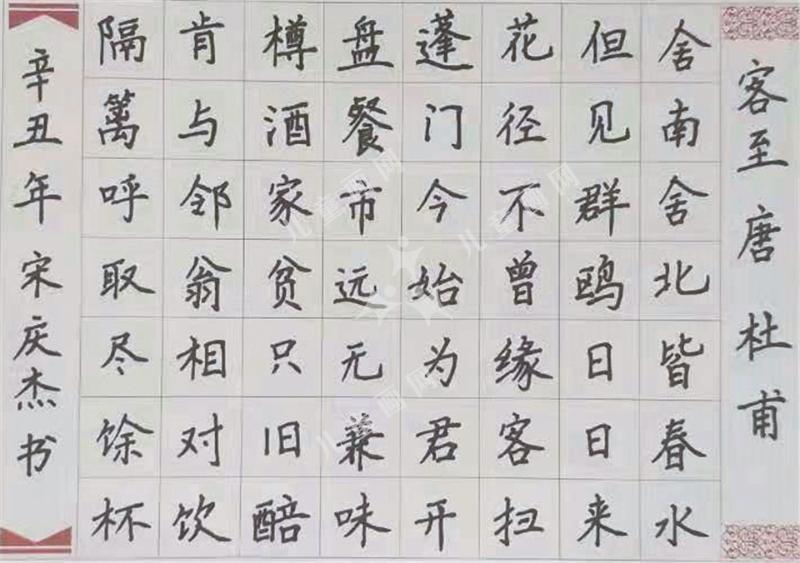 客至 唐 杜甫
舍南舍北皆春水
但见群鸥日日来
花径不曾缘客扫
蓬门今始为君开
盘餐市远无兼味
樽酒家贫只旧醅
肯与邻翁相对饮
隔篱呼取尽馀杯
辛丑年 宋庆杰书
儿童画网
儿童画网
儿童画网